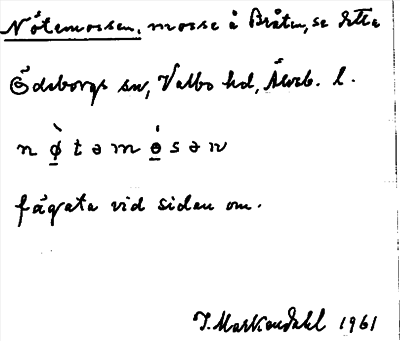 Nötemossen, mosse å Bråten, se detta
Ödeborgs sn, Valbo hd, Älvsb. l.
n ø̀ t ə m ó s ə n
fågata vid sidan om.
J. Markendahl 1961